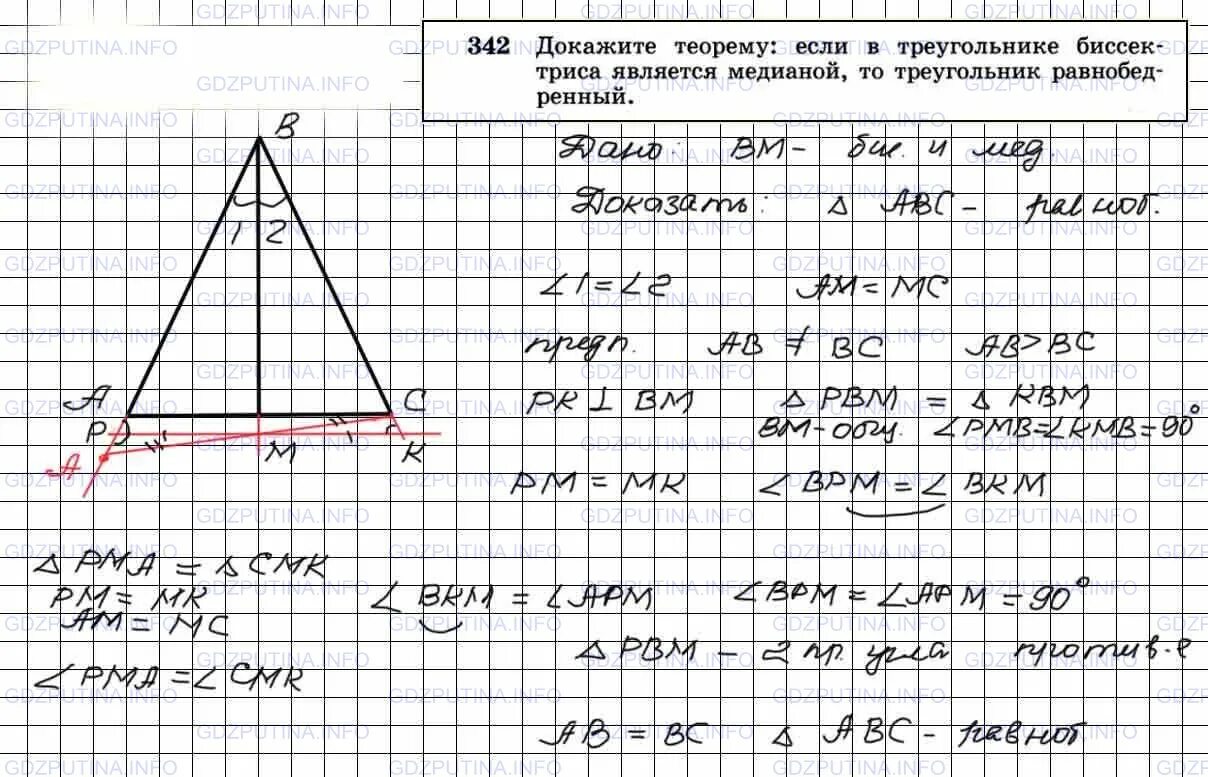 342 Докажите теорему: если в треугольнике биссек-
триса является медианой, то треугольник равнобед-
ренный.
B
1 2
A
C
P
M
K
A
Дано: BM - бис. и мед.
Доказать: △ ABC - равноб.
∠1 = ∠2 AM = MC
предп. AB ≠ BC AB > BC
PK ⊥ BM △ PBM = △ KBM
BM - общ. ∠PMB = ∠KMB = 90°
PM = MK ∠BPM = ∠BKM
△ PMA = △ CMK
PM = MK
AM = MC
∠PMA = ∠CMK
∠BKM = ∠APM ∠BPM = ∠APM = 90°
△ PBM - 2 пр. угла против-е
AB = BC △ ABC - равноб
GDZPUTINA.INFO